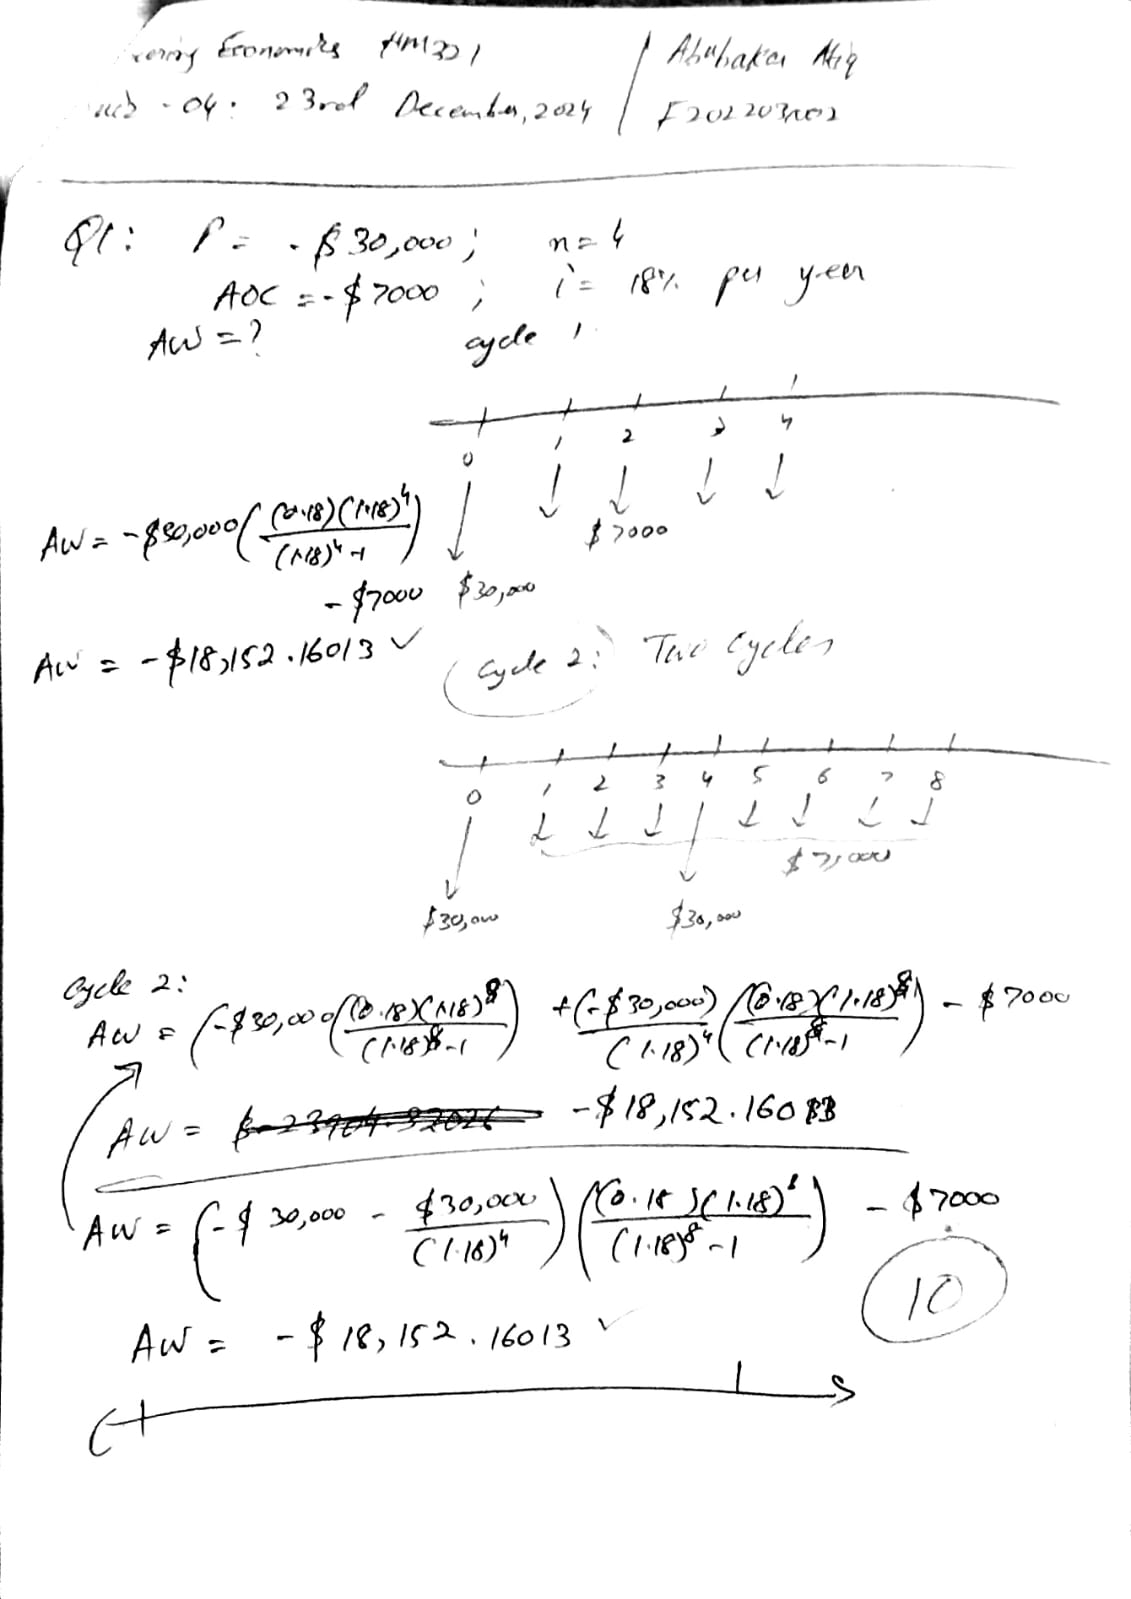 Economics HM321
- 04: 23rd December, 2024
Abubakar Atiq
Q1: P = -$30,000; n = 4
AOC = -$7000; i = 18% per year
AW = ?
cycle 1
0 1 2 3 4
$7000
$30,000
AW = -$30,000((0.18)(1.18)^4/((1.18)^4-1)) - $7000
AW = -$18,152.16013 ✓
Cycle 2: Two Cycles
0 1 2 3 4 5 6 7 8
$7,000
$30,000 $30,000
Cycle 2:
AW = (-$30,000((0.18)(1.18)^8/((1.18)^8-1)) + (-$30,000)/(1.18)^4((0.18)(1.18)^8/((1.18)^8-1)) - $7000
AW = -$18,152.16013
AW = (-$30,000 - $30,000/(1.18)^4)((0.18)(1.18)^8/((1.18)^8-1)) - $7000
10
AW = -$18,152.16013 ✓